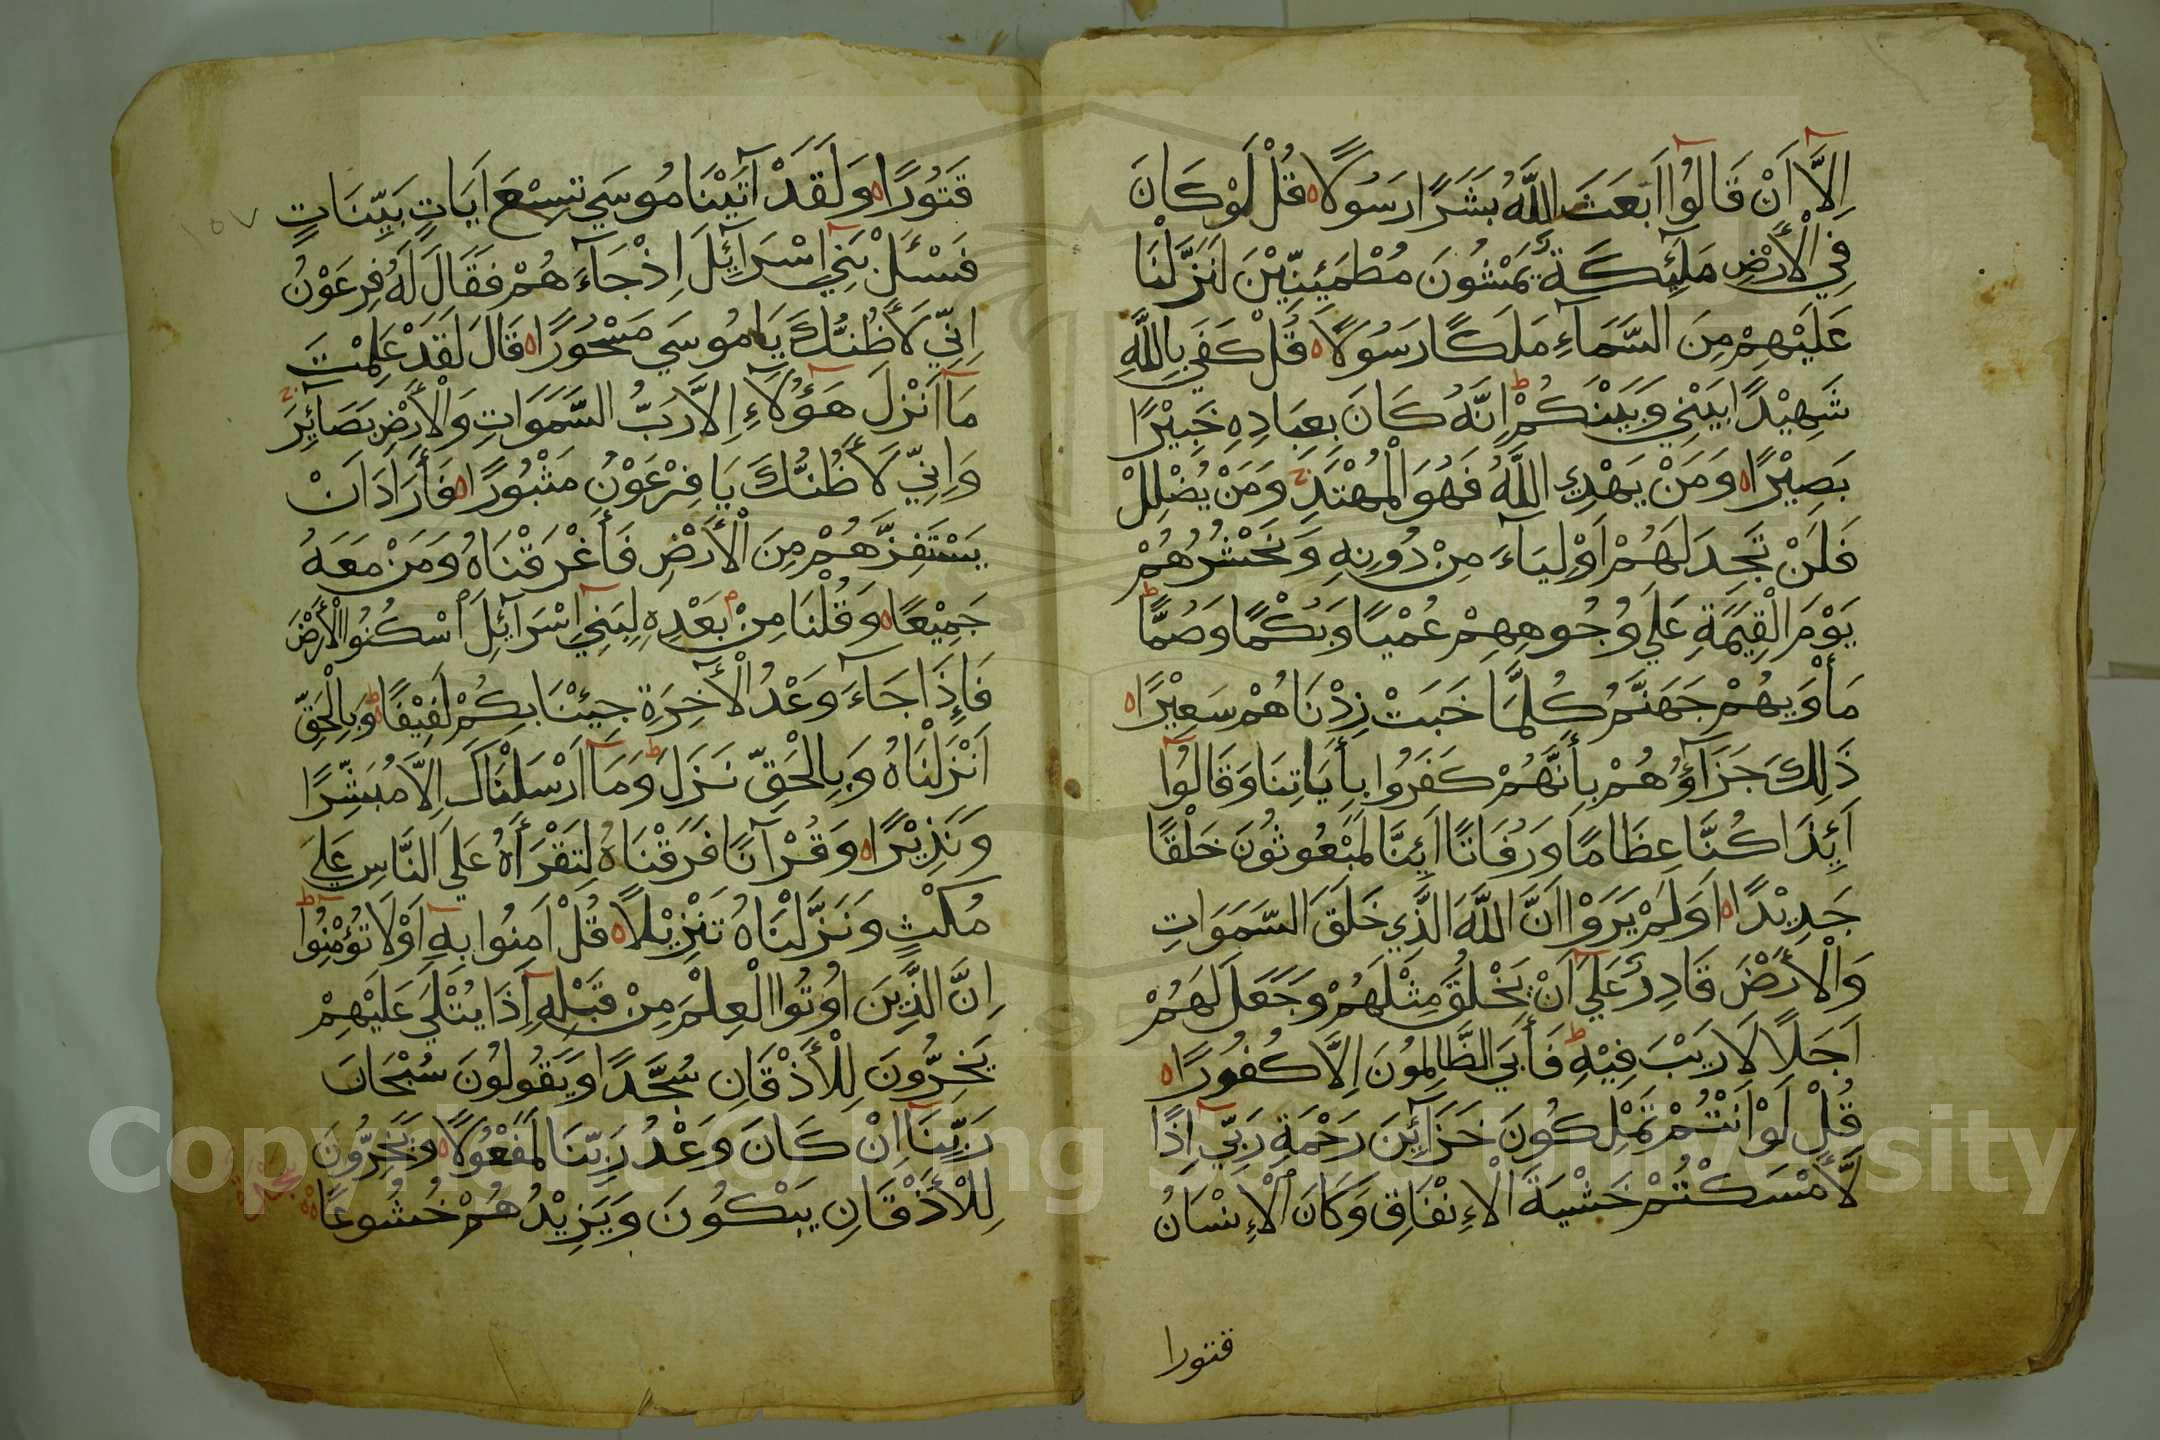 اِلَّآ اَنْ قَالُوْٓا اَبَعَثَ اللَّهُ بَشَرًا رَسُوْلًا ه قُلْ لَوْ كَانَ
فِي الْأَرْضِ مَلَٓئِكَةٌ يَمْشُونَ مُطْمَئِنِّيْنَ لَنَزَّلْنَا
عَلَيْهِمْ مِنَ السَّمَآءِ مَلَكًا رَسُوْلًا ه قُلْ كَفَي بِاللَّهِ
شَهِيْدًا بَيْنِي وَبَيْنَكُمْ ط اِنَّهُ كَانَ بِعِبَادِهِ خَبِيْرًا
بَصِيْرًا ه وَمَنْ يَهْدِي اللَّهُ فَهُوَ الْمُهْتَدِ ج وَمَنْ يُضْلِلْ
فَلَنْ تَجِدَ لَهُمْ اَوْلِيَآءَ مِنْ دُونِهِ وَنَحْشُرُهُمْ
يَوْمَ الْقِيَمَةِ عَلَي وُجُوهِهِمْ عُمْيًا وَبُكْمًا وَصُمًّا ط
مَأْوَيهُمْ جَهَنَّمُ كُلَّمَا خَبَتْ زِدْنَاهُمْ سَعِيْرًا ه
ذَلِكَ جَزَآؤُهُمْ بِأَنَّهُمْ كَفَرُوا بِأَيَاتِنَا وَقَالُوْٓا
اَئِذَا كُنَّا عِظَامًا وَرُفَاتًا اَئِنَّا لَمَبْعُوثُونَ خَلْقًا
جَدِيْدًا ه اَوَلَمْ يَرَوْا اَنَّ اللَّهَ الَّذِي خَلَقَ السَّمَوَاتِ
وَالْأَرْضَ قَادِرٌ عَلَٓي اَنْ يَخْلُقَ مِثْلَهُمْ وَجَعَلَ لَهُمْ
اَجَلًا لَا رَيْبَ فِيْهِ ط فَأَبَي الظَّالِمُونَ اِلَّا كُفُورًا ه
قُلْ لَوْ اَنْتُمْ تَمْلِكُونَ خَزَآئِنَ رَحْمَةِ رَبِّيٓ اِذًا
لَأَمْسَكْتُمْ خَشْيَةَ الْاِنْفَاقِ وَكَانَ الْاِنْسَانُ
قتورا
قَتُورًا ه وَلَقَدْ آتَيْنَا مُوسَي تِسْعَ اَيَاتٍ بَيِّنَاتٍ
١٥٧
فَسْئَلْ بَنِيٓ اِسْرَآئِلَ اِذْ جَآءَهُمْ فَقَالَ لَهُ فِرْعَوْنُ
اِنِّي لَأَظُنُّكَ يَا مُوسَي مَسْحُورًا ه قَالَ لَقَدْ عَلِمْتَ
مَآ اَنْزَلَ هَٓؤُلَآءِ اِلَّا رَبُّ السَّمَوَاتِ وَالْأَرْضِ بَصَآئِرَ ج
وَاِنِّي لَأَظُنُّكَ يَا فِرْعَوْنُ مَثْبُورًا ه فَأَرَادَ اَنْ
يَسْتَفِزَّهُمْ مِنَ الْأَرْضِ فَأَغْرَقْنَاهُ وَمَنْ مَعَهُ
جَمِيْعًا ه وَقُلْنَا مِنْ بَعْدِهِ لِبَنِيٓ اِسْرَآئِلَ اسْكُنُوا الْأَرْضَ
فَاِذَا جَآءَ وَعْدُ الْأَخِرَةِ جِئْنَا بِكُمْ لَفِيْفًا ط وَبِالْحَقِّ
اَنْزَلْنَاهُ وَبِالْحَقِّ نَزَلَ ط وَمَآ اَرْسَلْنَاكَ اِلَّا مُبَشِّرًا
وَنَذِيْرًا ه وَقُرْآنًا فَرَقْنَاهُ لِتَقْرَأَهُ عَلَي النَّاسِ عَلَي
مُكْثٍ وَنَزَّلْنَاهُ تَنْزِيْلًا ه قُلْ اٰمِنُوا بِهِٓ اَوْ لَا تُؤْمِنُوْٓا ط
اِنَّ الَّذِيْنَ اُوتُوا الْعِلْمَ مِنْ قَبْلِهِٓ اِذَا يُتْلَي عَلَيْهِمْ
يَخِرُّونَ لِلْأَذْقَانِ سُجَّدًا وَيَقُولُونَ سُبْحَانَ
رَبِّنَآ اِنْ كَانَ وَعْدُ رَبِّنَا لَمَفْعُوْلًا ه وَيَخِرُّونَ
لِلْأَذْقَانِ يَبْكُونَ وَيَزِيْدُهُمْ خُشُوعًا ه
سجدة
Copyright © King Saud University